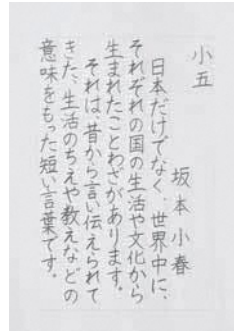 小五
坂本小春
日本だけでなく、世界中に、
それぞれの国の生活や文化から
生まれたことわざがあります。
それは、昔から言い伝えられて
きた、生活のちえや教えなどの
意味をもった短い言葉です。